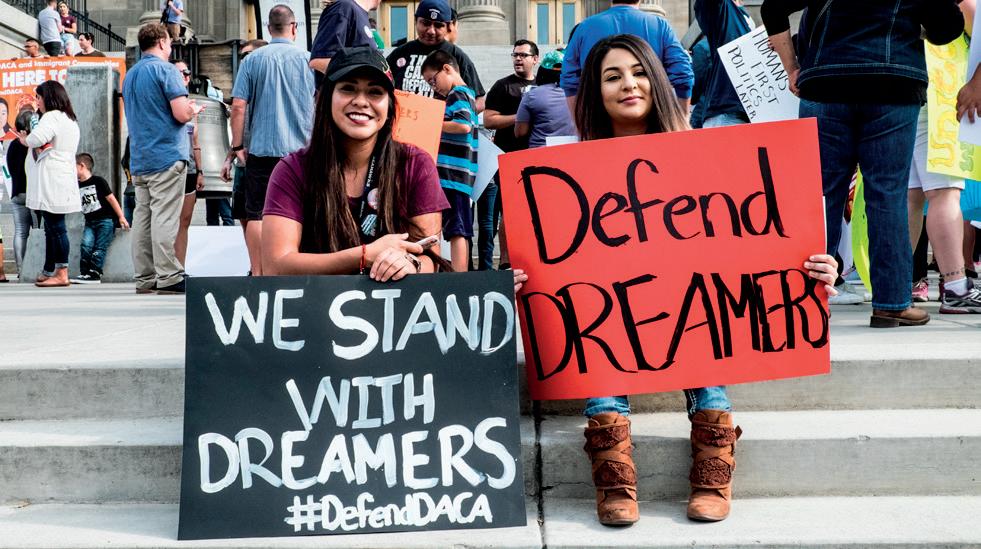 DACA and Immigrant Communities
HERE TO
WE STAND
WITH
DREAMERS
#DefendDACA
Defend
DREAMERS
HUMANS
FIRST
POLITICS
LATER